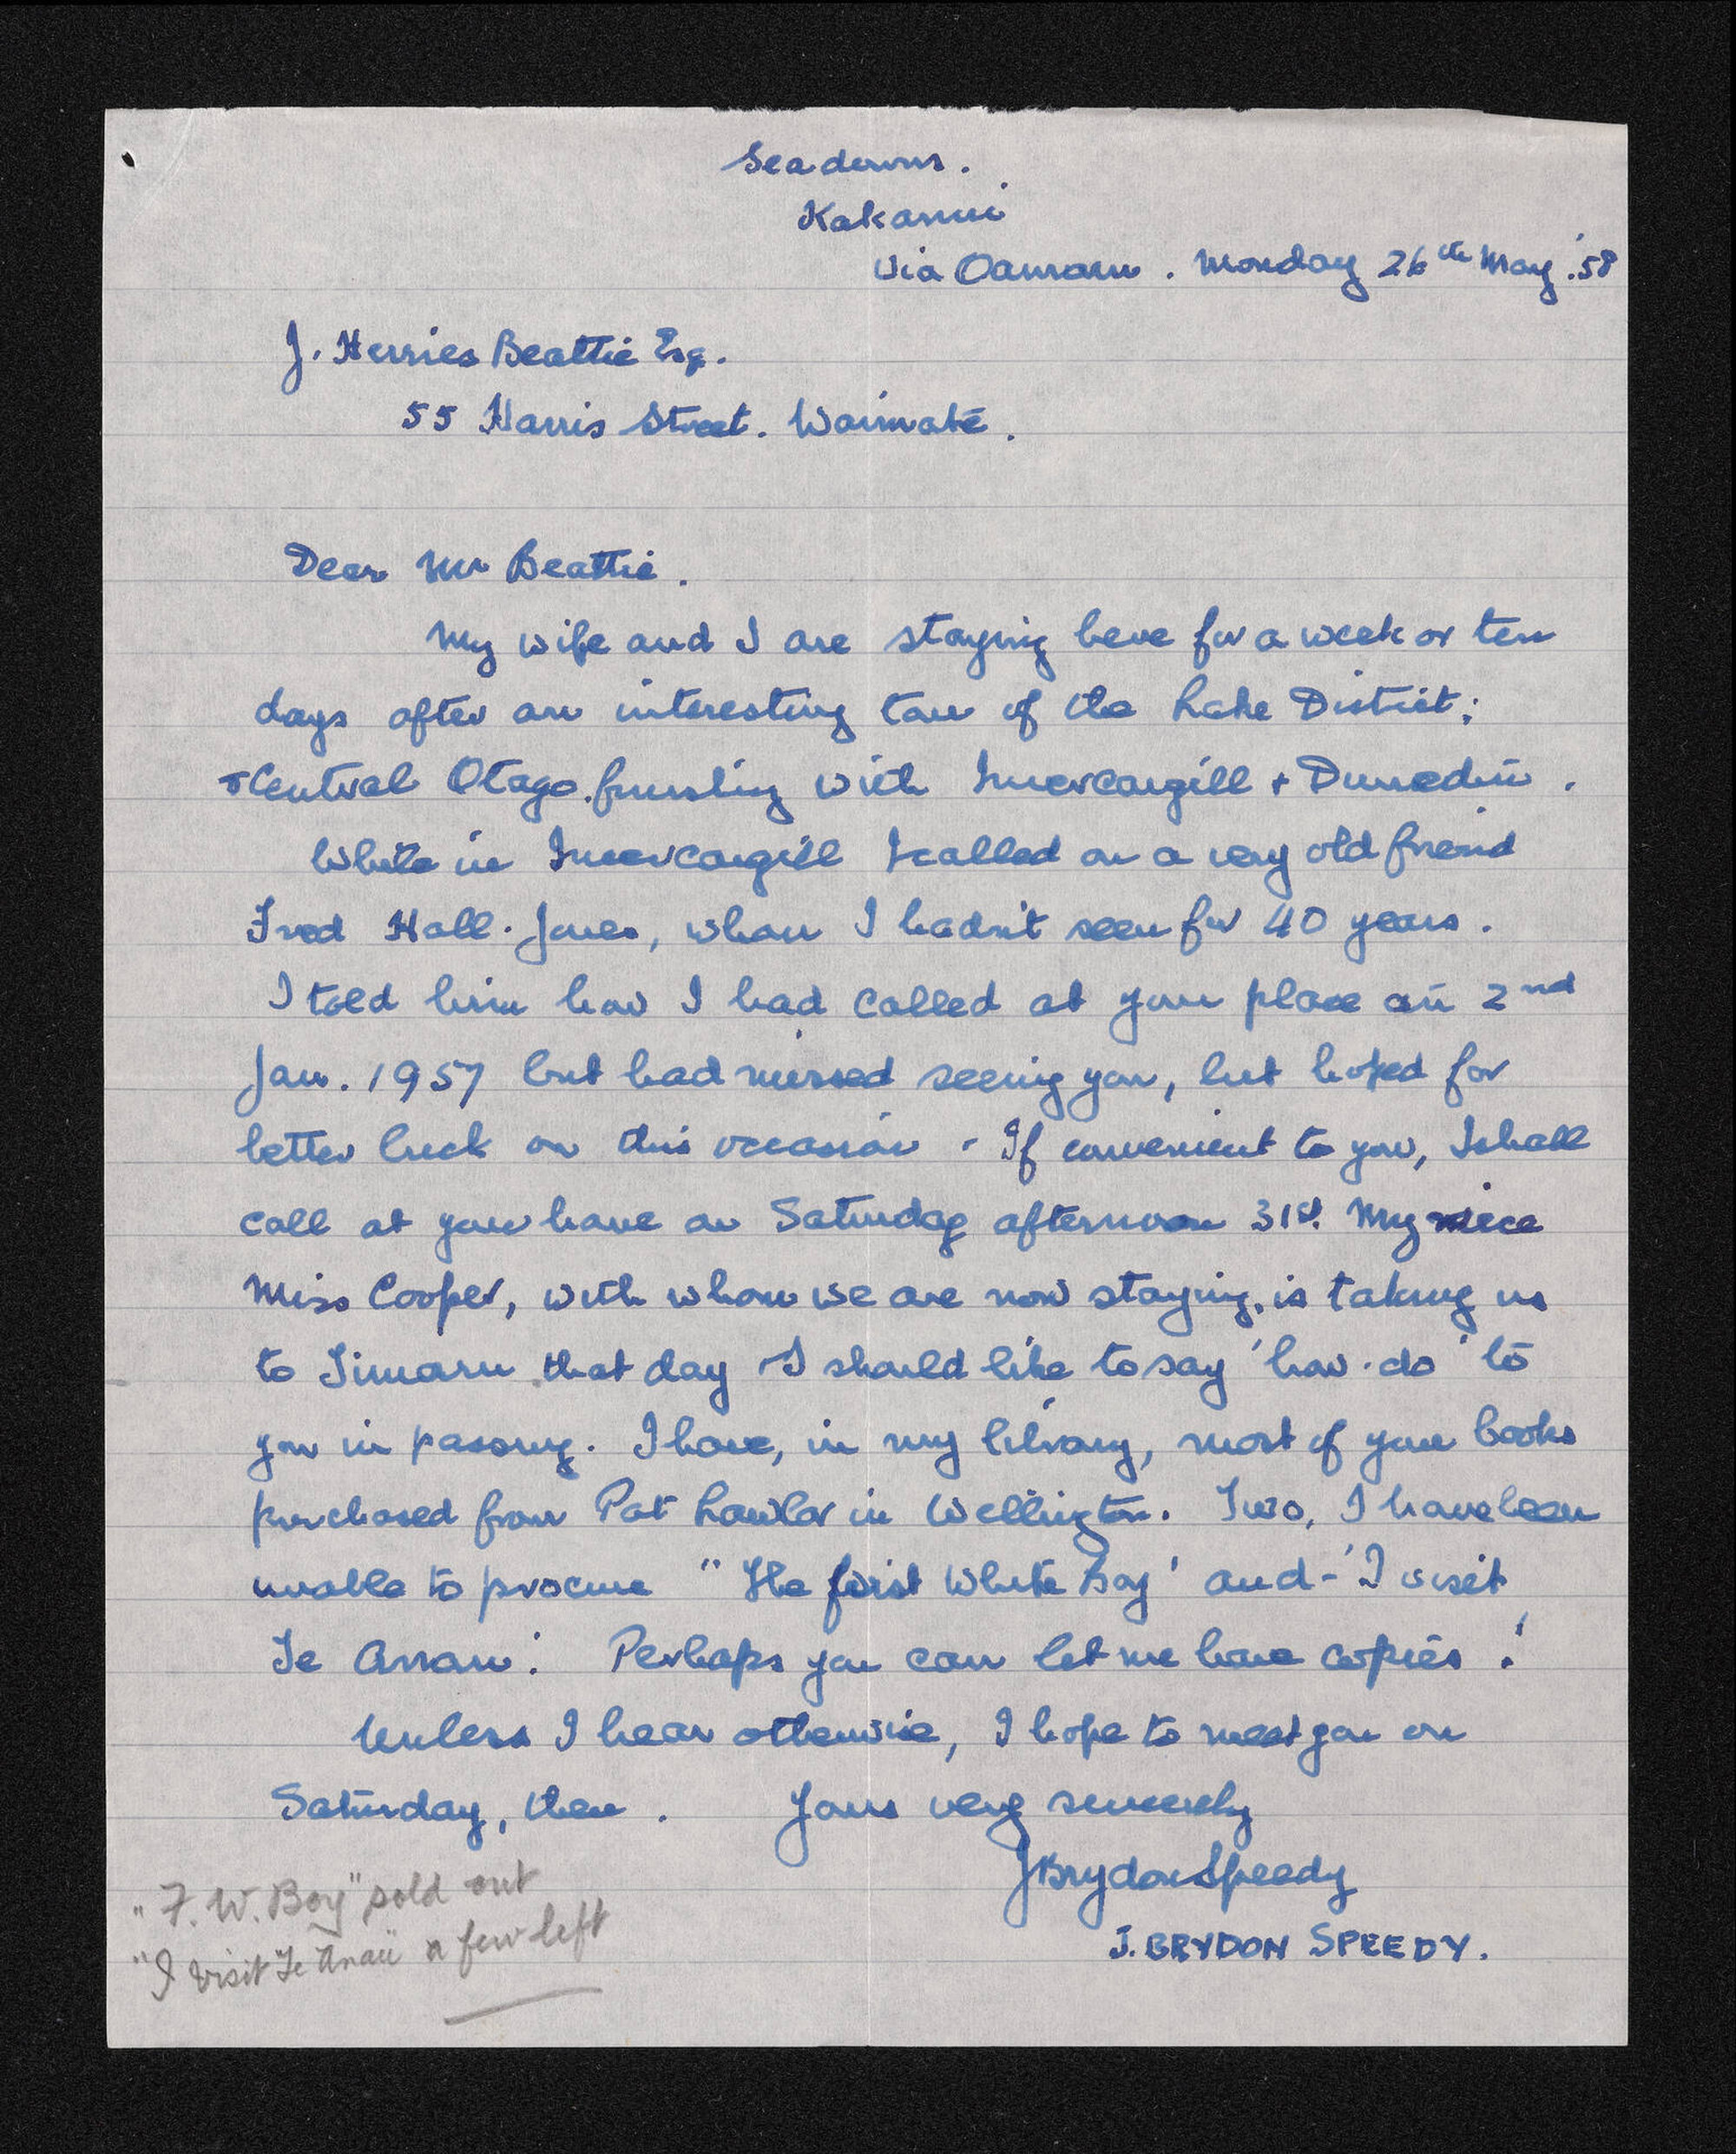 Seadowns.
Kakanui
Via Oamaru. Monday 26th May '58
J. Herries Beattie Esq.
55 Harris Street. Waimate.
Dear Mr Beattie.
My wife and I are staying here for a week or ten
days after an interesting tour of the Lake District;
+ Central Otago. finishing with Invercargill + Dunedin.
While in Invercargill I called on a very old friend
Fred Hall-Jones, whom I hadn't seen for 40 years.
I told him how I had called at your place on 2nd
Jan. 1957 but had missed seeing you, but hoped for
better luck on this occasion. If convenient to you, I shall
call at your home on Saturday afternoon 31st. My niece
Miss Cooper, with whom we are now staying, is taking us
to Timaru that day + I should like to say 'how-do' to
you in passing. I have, in my library, most of your books
purchased from Pat Lawlor in Wellington. Two, I have been
unable to procure "The first White Boy' and - 'I visit
Te Anau'. Perhaps you can let me have copies!
Unless I hear otherwise, I hope to meet you on
Saturday, then. Yours very sincerely
J Brydon Speedy
J. BRYDON SPEEDY.
"F. W. Boy" sold out
"I visit Te Anau" a few left